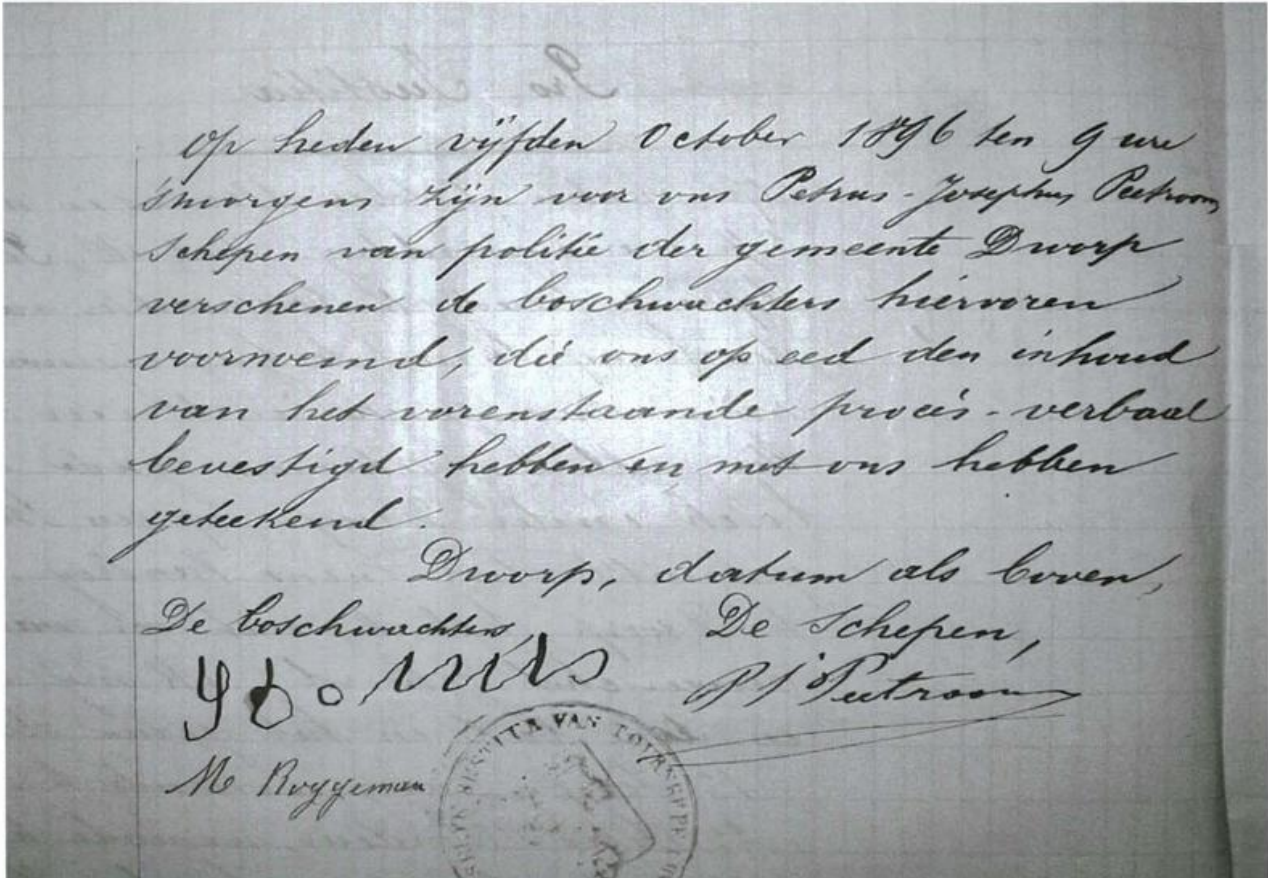 Op heden vijfden October 1896 ten 9 ure
smorgens zijn voor ons Petrus-Josephus Peetroons
schepen van politie der gemeente Dworp
verschenen de boschwachters hiervoren
voornoemd, die ons op eed den inhoud
van het vorenstaande procès-verbaal
bevestigd hebben en met ons hebben
geteekend.
Dworp, datum als boven,
De boschwachters, De Schepen,
P J Peetroons
M Roggeman
BESTUUR VAN TOURNEPPE